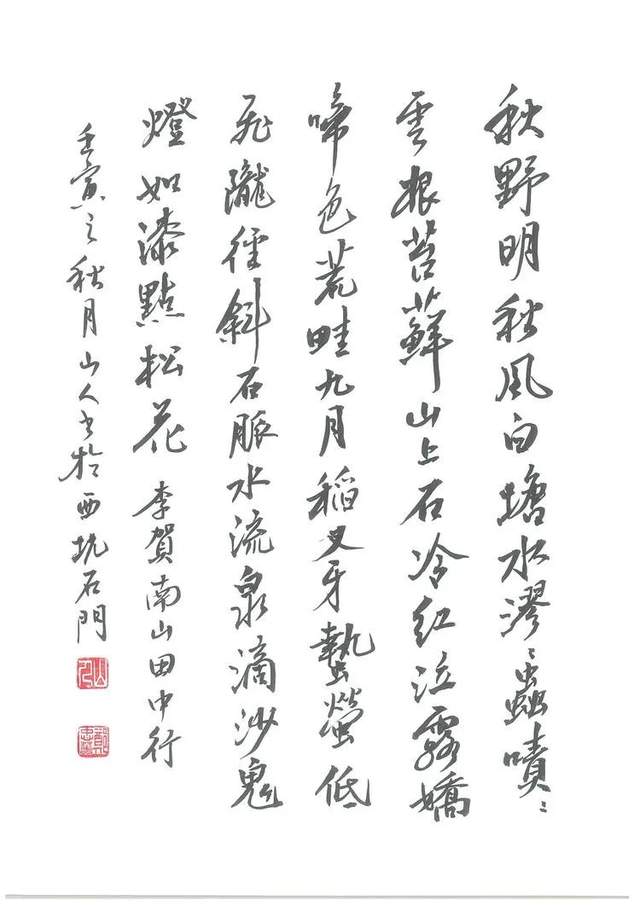 秋野明秋風白塘水漻〻蟲嘖〻
雲根苔蘚山上石冷紅泣露嬌
啼色荒畦九月稻叉牙蟄螢低
飛隴徑斜石脈水流泉滴沙鬼
燈如漆點松花 李賀南山田中行
壬寅之秋月山人書於西坑石門